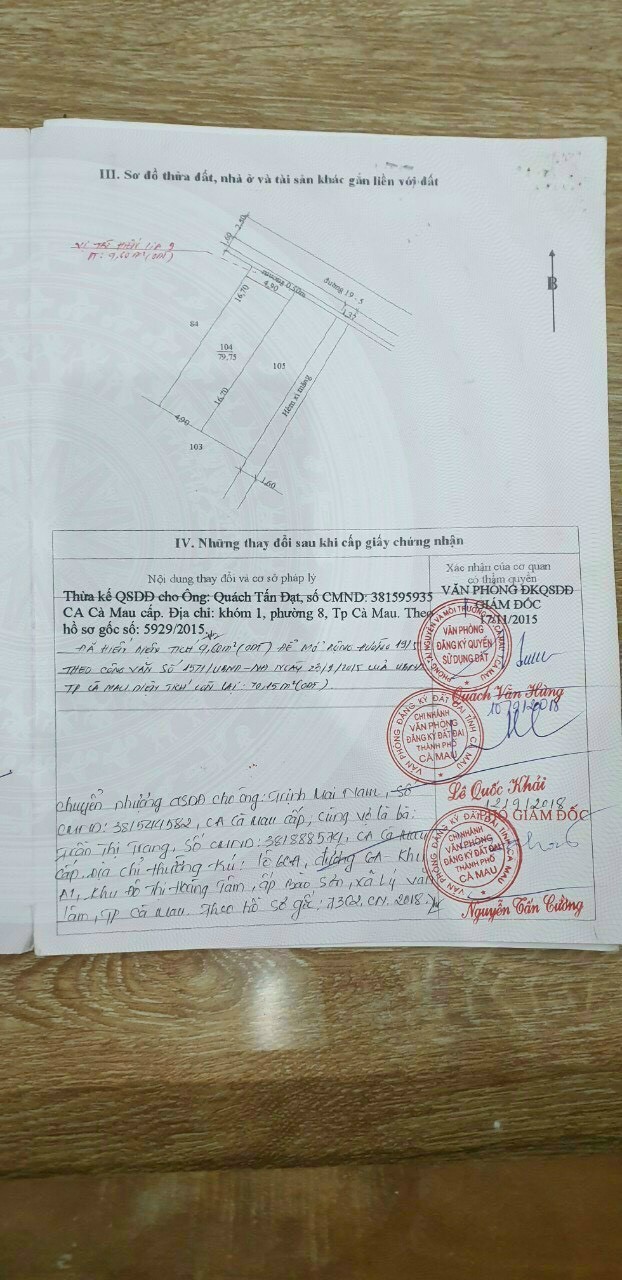 III. Sơ đồ thửa đất, nhà ở và tài sản khác gắn liền với đất
VỊ TRÍ HIẾN LÀ 9
DT: 9,60m²(ODT)
1,60
2,40
mương 0,50m
4,90
đường 19 - 5
1,37
16,70
B
84
104
79,75
105
16,70
Hẻm xi măng
4,90
103
1,60
IV. Những thay đổi sau khi cấp giấy chứng nhận
Nội dung thay đổi và cơ sở pháp lý
Xác nhận của cơ quan
có thẩm quyền
Thừa kế QSDĐ cho Ông: Quách Tấn Đạt, số CMND: 381595935
CA Cà Mau cấp. Địa chỉ: khóm 1, phường 8, Tp Cà Mau. Theo
hồ sơ gốc số: 5929/2015
VĂN PHÒNG ĐKQSDĐ
GIÁM ĐỐC
17/11/2015
VĂN PHÒNG
ĐĂNG KÝ QUYỀN
SỬ DỤNG ĐẤT
Quách Văn Hừng
ĐÃ HIẾN DIỆN TÍCH 9,60m² (ODT) ĐỂ MỞ RỘNG ĐƯỜNG 19/5
THEO CÔNG VĂN SỐ 1571/UBND-NĐ NGÀY 28/9/2015 CỦA UBND
TP CÀ MAU DIỆN TÍCH CÒN LẠI: 70,15m² (ODT).
10/9/2018
VĂN PHÒNG ĐĂNG KÝ ĐẤT ĐAI TỈNH CÀ MAU
CHI NHÁNH
VĂN PHÒNG
ĐĂNG KÝ ĐẤT ĐAI
THÀNH PHỐ
CÀ MAU
Lê Quốc Khải
Chuyển nhượng QSDĐ cho ông: Trịnh Mai Nam, Số
CMND: 381544582, CA Cà Mau cấp, cùng vợ là bà:
Trần Thị Trang, Số CMND: 381888574, CA Cà Mau
cấp. Địa chỉ thường trú: lô 6CA, đường CA - Khu
A1, Khu Đô Thị Hoàng Tâm, ấp Bào Sơn, xã Lý Văn
Lâm, TP Cà Mau. Theo hồ sơ gốc: 7362.CN.2018
12/9/2018
GIÁM ĐỐC
VĂN PHÒNG ĐĂNG KÝ ĐẤT ĐAI TỈNH CÀ MAU
CHI NHÁNH
VĂN PHÒNG
ĐĂNG KÝ ĐẤT ĐAI
THÀNH PHỐ
CÀ MAU
Nguyễn Tấn Cường